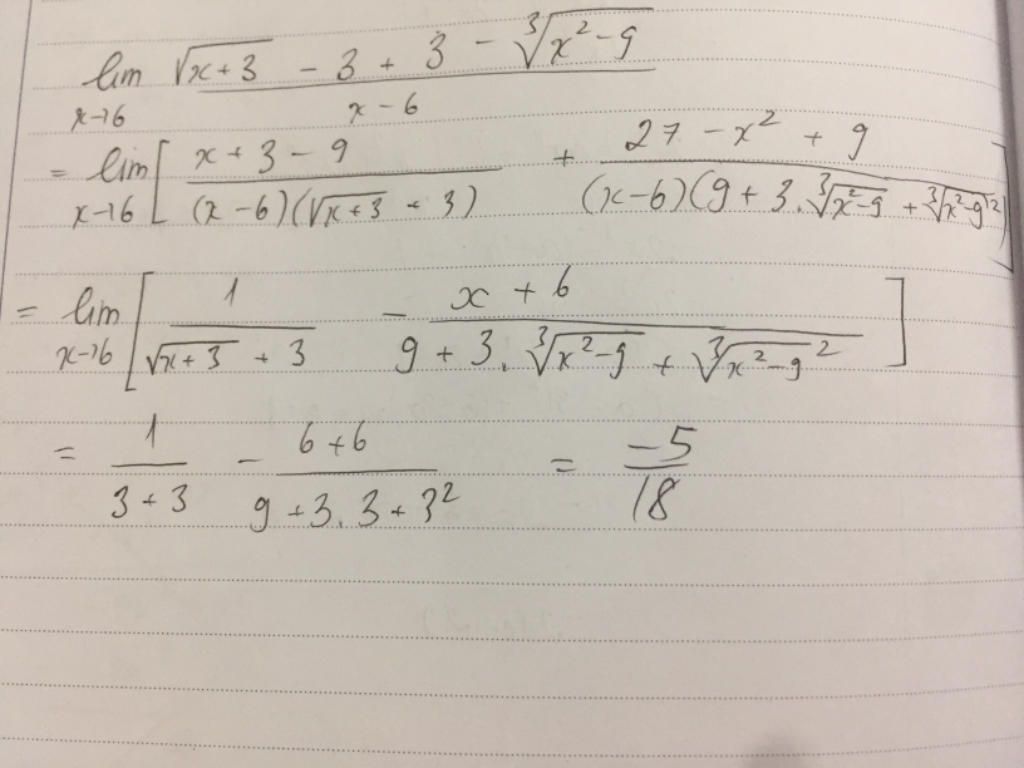 lim x→6 (√(x+3) - 3 + 3 - ∛(x²-9)) / (x-6)
= lim x→6 [ (x+3-9) / ((x-6)(√(x+3) + 3)) + (27-x²+9) / ((x-6)(9+3.∛(x²-9) + ∛(x²-9)²)) ]
= lim x→6 [ 1 / (√(x+3) + 3) - (x+6) / (9+3.∛(x²-9) + ∛(x²-9)²) ]
= 1 / (3+3) - (6+6) / (9+3.3+3²) = -5/18